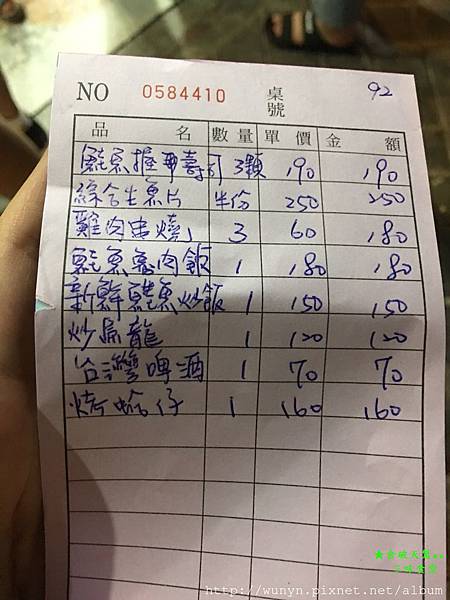 NO 0584410 桌號 92
品名 數量 單價 金額
鮭魚握壽司 3顆 190 190
綜合生魚片 半份 250 250
雞肉串燒 3 60 180
鮭魚魯肉飯 1 180 180
新鮮鮭魚炒飯 1 150 150
炒烏龍 1 120 120
台灣啤酒 1 70 70
烤蛤仔 1 160 160
★食破天驚..
三味食堂
http://wunyn.pixnet.net/album